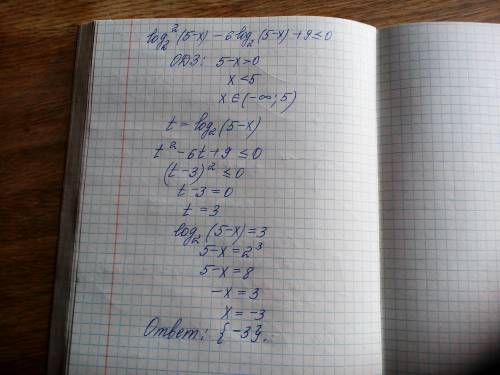 log₂²(5-x) - 6log₂(5-x) + 9 ≤ 0
ОДЗ: 5-x>0
x<5
x∈(-∞; 5)
t = log₂(5-x)
t² - 6t + 9 ≤ 0
(t-3)² ≤ 0
t-3 = 0
t = 3
log₂(5-x) = 3
5-x = 2³
5-x = 8
-x = 3
x = -3
Ответ: {-3}.